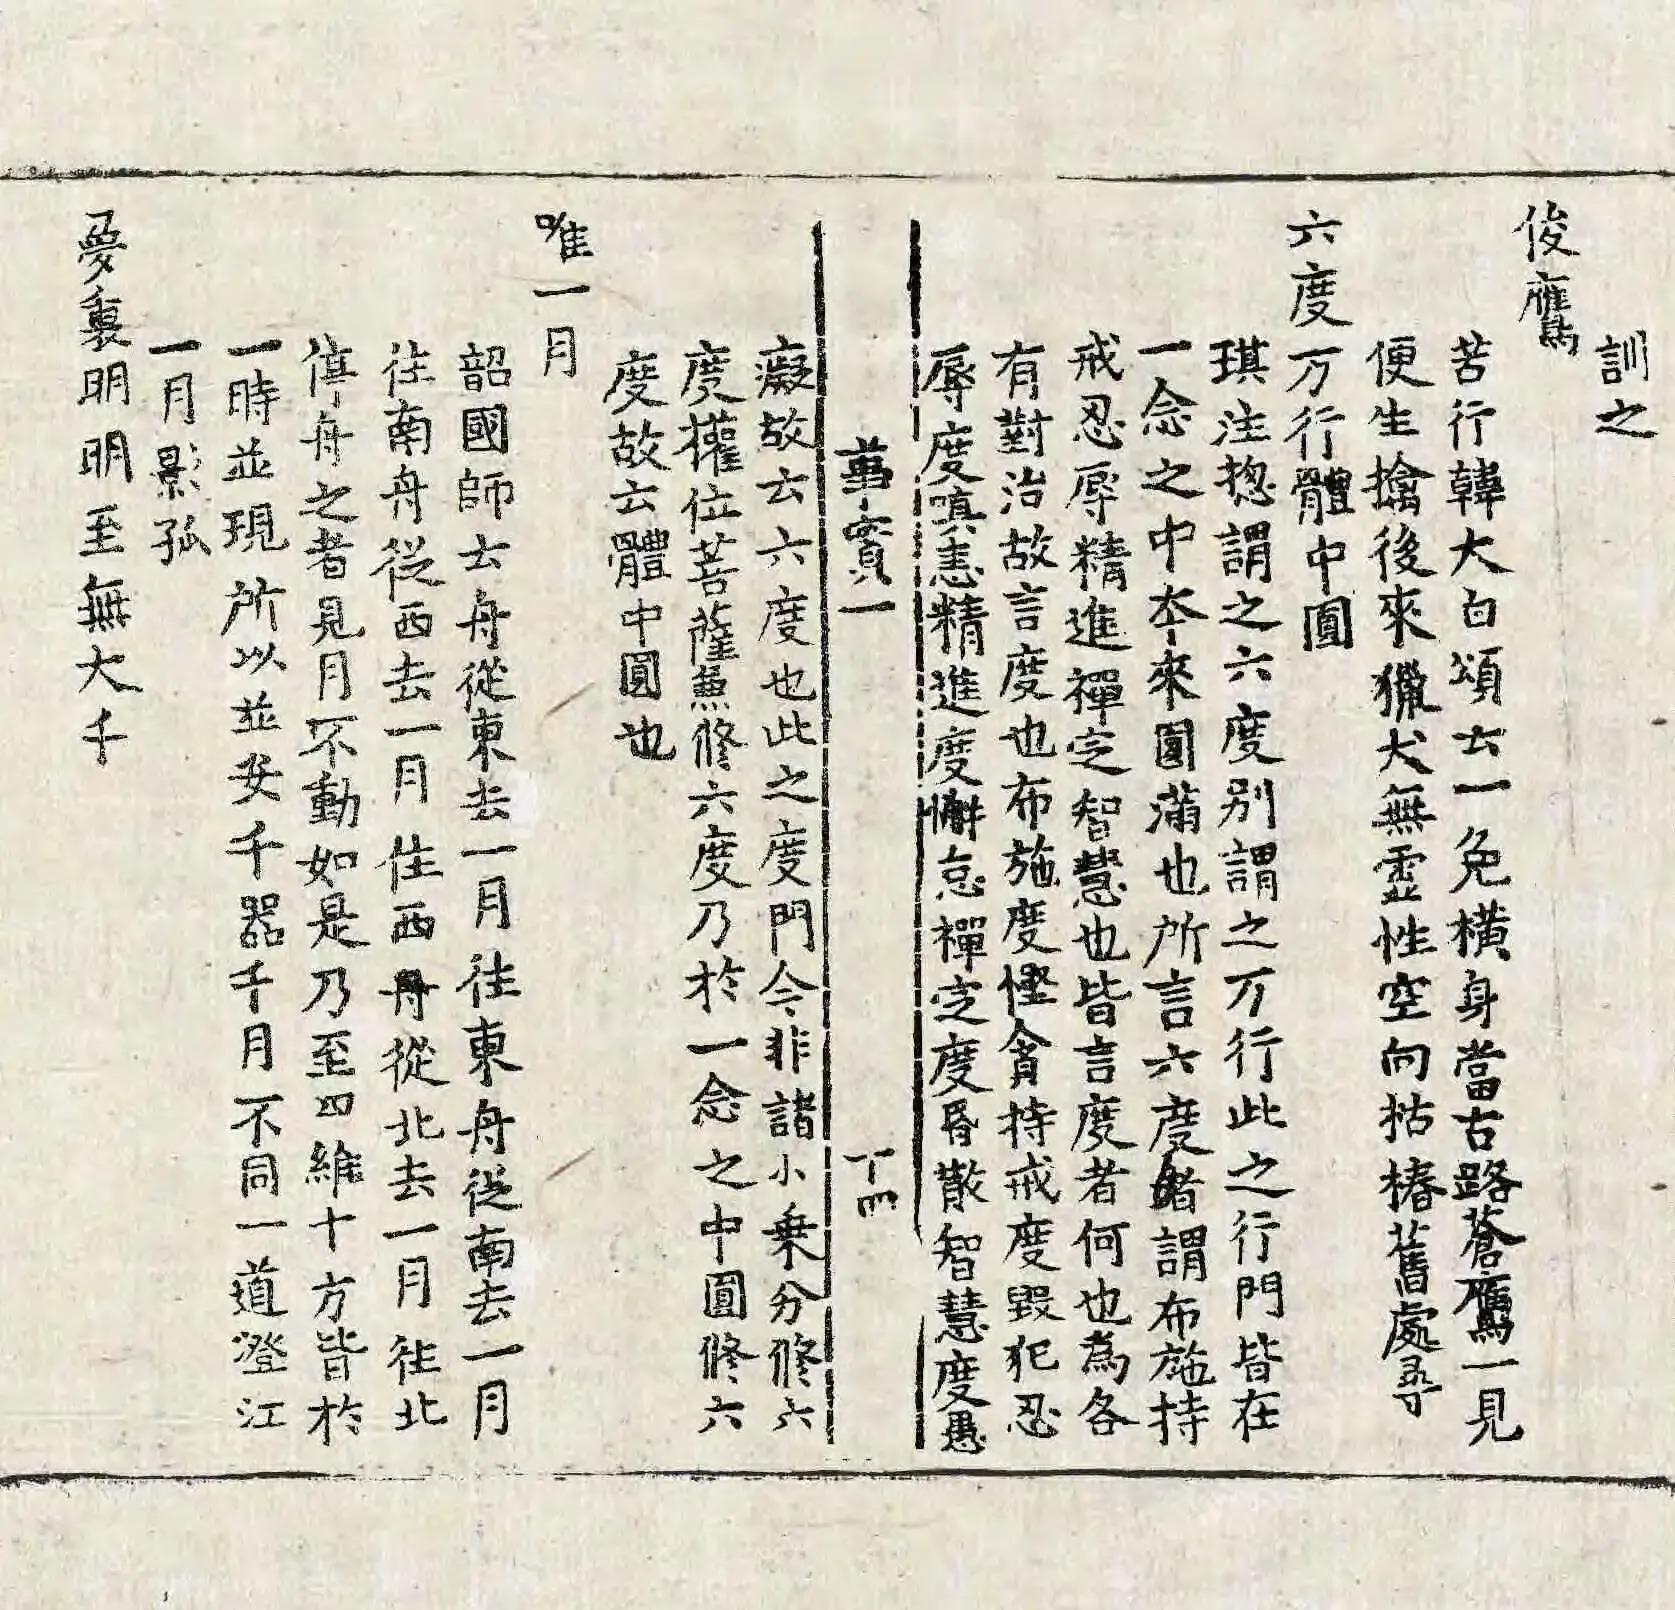 訓之
俊鷹
苦行韓大白頌云一兔橫身當古路蒼鷹一見
便生擒後來獵犬無靈性空向枯樁舊處尋
六度万行體中圓
琪注揔謂之六度別謂之万行此之行門皆在
一念之中本來圓滿也所言六度者謂布施持
戒忍辱精進禪定智慧也皆言度者何也為各
有對治故言度也布施度慳貪持戒度毀犯忍
辱度嗔恚精進度懈怠禪定度昏散智慧度愚
事實一
丁四
癡故云六度也此之度門今非諸小乗分修六
度權位菩薩兼修六度乃於一念之中圓修六
度故云體中圓也
唯一月
韶國師云舟從東去一月往東舟從南去一月
往南舟從西去一月往西舟從北去一月往北
停舟之者見月不動如是乃至四維十方皆於
一時並現所以並安千器千月不同一道澄江
一月影孤
夢裏明明至無大千